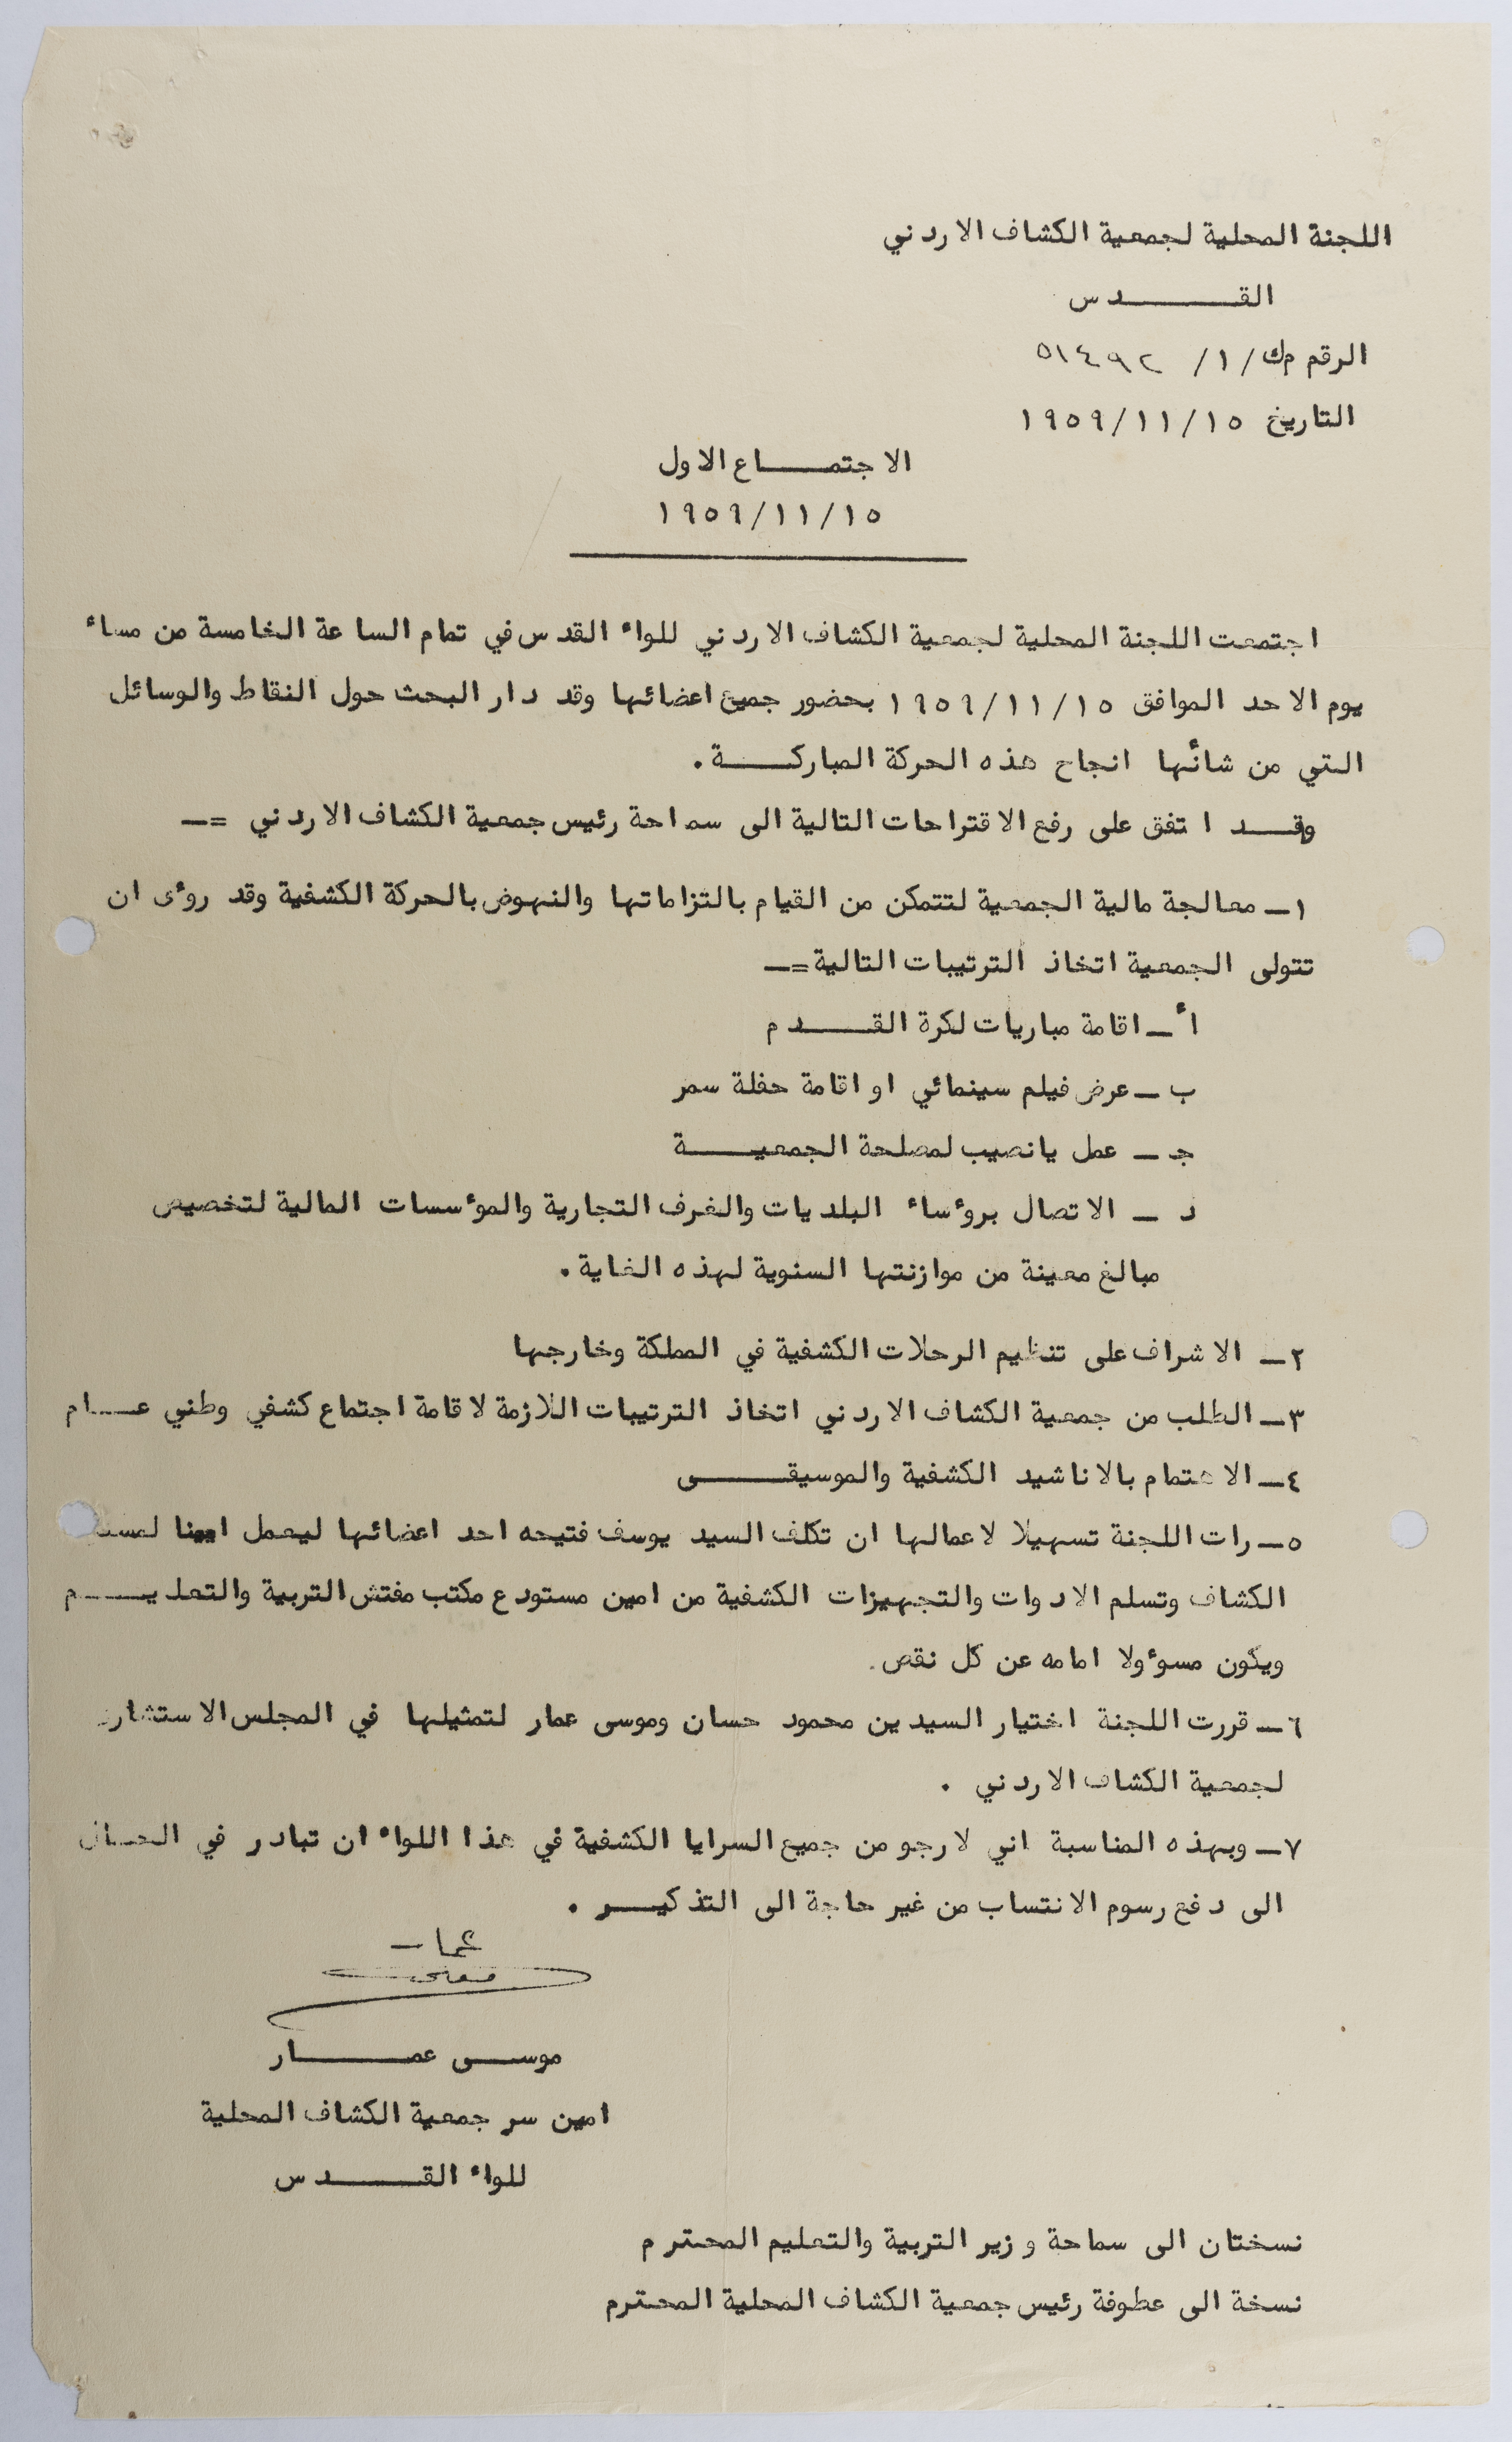 اللجنة المحلية لجمعية الكشاف الاردني
القدس
الرقم م ك/١/ ٥١٤٩٢
التاريخ ١٩٥٩/١١/١٥
الاجتماع الاول
١٩٥٩/١١/١٥
اجتمعت اللجنة المحلية لجمعية الكشاف الاردني للواء القدس في تمام الساعة الخامسة من مساء
يوم الاحد الموافق ١٩٥٩/١١/١٥ بحضور جميع اعضائها وقد دار البحث حول النقاط والوسائل
التي من شأنها انجاح هذه الحركة المباركة .
وقد اتفق على رفع الاقتراحات التالية الى سماحة رئيس جمعية الكشاف الاردني =ـ
١ـ معالجة مالية الجمعية لتتمكن من القيام بالتزاماتها والنهوض بالحركة الكشفية وقد روءى ان
تتولى الجمعية اتخاذ الترتيبات التالية =ـ
أ ـ اقامة مباريات لكرة القدم
ب ـ عرض فيلم سينمائي او اقامة حفلة سمر
جـ ـ عمل يانصيب لمصلحة الجمعية
د ـ الاتصال بروءساء البلديات والغرف التجارية والموءسسات المالية لتخصيص
مبالغ معينة من موازنتها السنوية لهذه الغاية .
٢ـ الاشراف على تنظيم الرحلات الكشفية في المملكة وخارجها
٣ـ الطلب من جمعية الكشاف الاردني اتخاذ الترتيبات اللازمة لاقامة اجتماع كشفي وطني عام
٤ـ الاهتمام بالاناشيد الكشفية والموسيقى
٥ـ رات اللجنة تسهيلا لاعمالها ان تكلف السيد يوسف فتيحه احد اعضائها ليعمل امينا
الكشاف وتسلم الادوات والتجهيزات الكشفية من امين مستودع مكتب مفتش التربية والتعليم
ويكون مسوءولا امامه عن كل نقص .
٦ـ قررت اللجنة اختيار السيدين محمود حسان وموسى عمار لتمثيلها في المجلس الاستشارى
لجمعية الكشاف الاردني .
٧ـ وبهذه المناسبة اني لارجو من جميع السرايا الكشفية في هذا اللواء ان تبادر في الحال
الى دفع رسوم الانتساب من غير حاجة الى التذكير .
موسى عمار
امين سر جمعية الكشاف المحلية
للواء القدس
نسختان الى سماحة وزير التربية والتعليم المحترم
نسخة الى عطوفة رئيس جمعية الكشاف المحلية المحترم